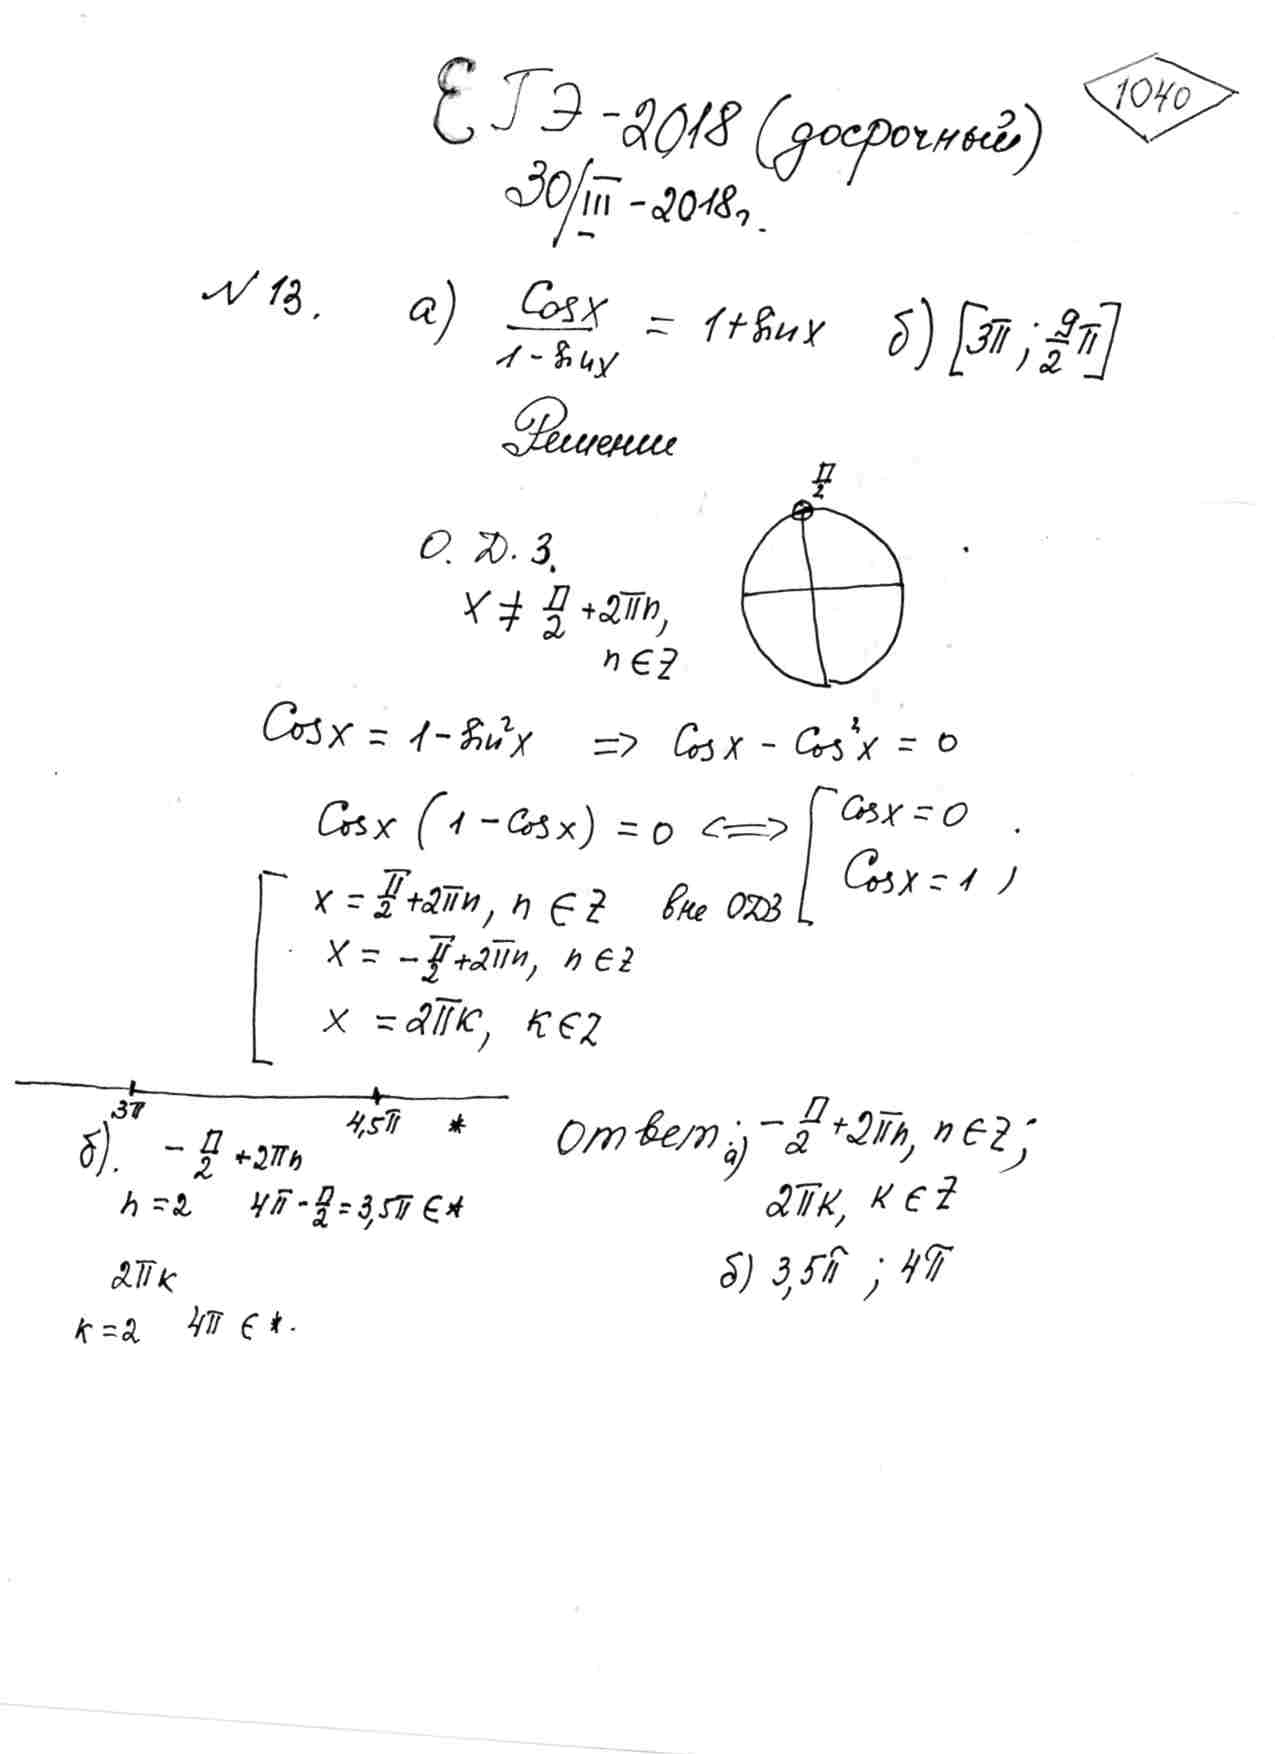 1040
ЕГЭ-2018 (досрочный)
30/III-2018г.
N 13. а) Cosx/(1-sinx) = 1+sinx б) [3π; 9/2 π]
Решение
π/2
О.Д.З.
x ≠ π/2 + 2πn,
n ∈ Z
Cosx = 1-sin²x => Cosx - Cos²x = 0
Cosx (1-Cosx) = 0 <=> [ Cosx = 0
Cosx = 1,
[ x = π/2 + 2πn, n ∈ Z вне ОДЗ
x = -π/2 + 2πn, n ∈ Z
x = 2πк, к ∈ Z
3π 4,5π *
б). -π/2 + 2πn
n = 2 4π - π/2 = 3,5π ∈ *
2πк
к = 2 4π ∈ *.
Ответ: а) -π/2 + 2πn, n ∈ Z;
2πк, к ∈ Z
б) 3,5π ; 4π